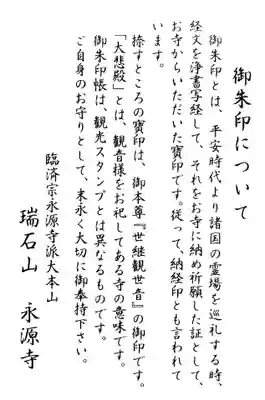 御朱印について
御朱印とは、平安時代より諸国の霊場を巡礼する時、
経文を浄書写経して、それをお寺に納め祈願した証として、
お寺からいただいた寶印です。従って、納経印とも言われて
います。
捺すところの寶印は、御本尊『世継観世音』の御印です。
「大悲殿」とは、観音様をお祀してある寺の意味です。
御朱印帳は、観光スタンプとは異なるものです。
ご自身のお守りとして、末永く大切に御奉持下さい。
臨済宗永源寺派大本山
瑞石山 永源寺